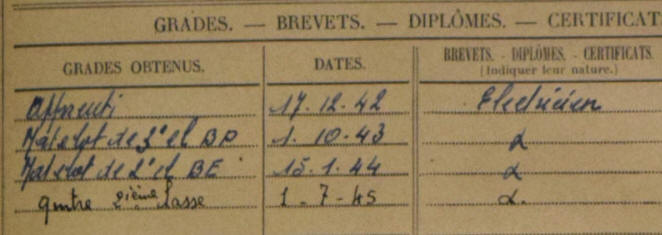 GRADES. — BREVETS. — DIPLÔMES. — CERTIFICAT
GRADES OBTENUS. DATES. BREVETS. - DIPLÔMES. - CERTIFICATS.
(Indiquer leur nature.)
Apprenti 17.12.42 Electricien
Matelot de 3e cl BP 1. 10.43 d
Matelot de 2e cl BE 15.1.44 d
2ième classe 1-7-45 d.